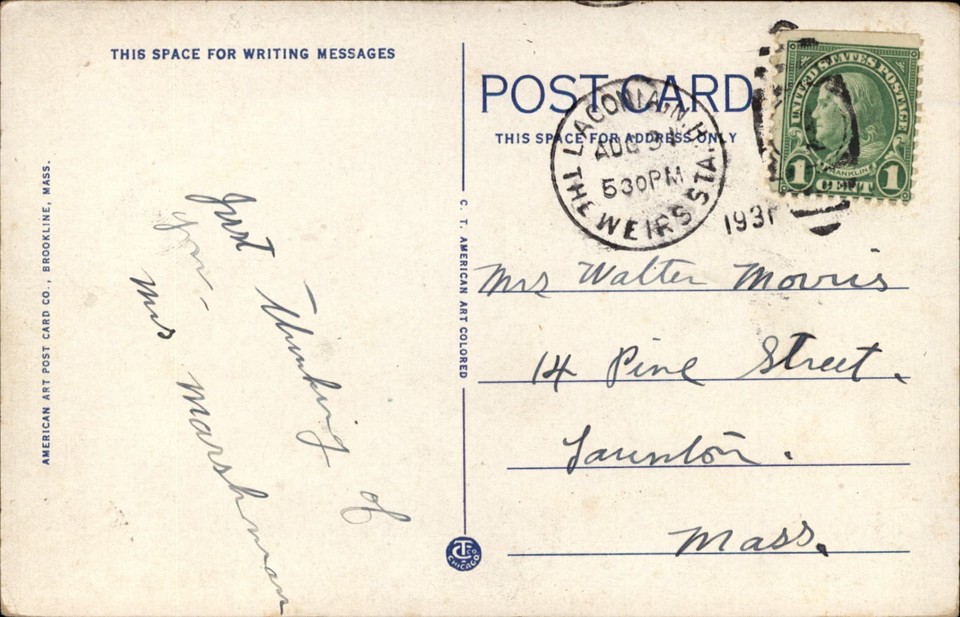 THIS SPACE FOR WRITING MESSAGES
AMERICAN ART POST CARD CO., BROOKLINE, MASS.
Just Thinking of
you -
Mrs Marshman
C. T. AMERICAN ART COLORED
CTCO
CHICAGO
POST CARD
THIS SPACE FOR ADDRESS ONLY
LACONIA, N.H.
AUG 31
530PM
THE WEIRS STA.
1931
UNITED STATES POSTAGE
FRANKLIN
1 CENT 1
Mrs Walter Morris
14 Pine Street.
Taunton.
Mass.